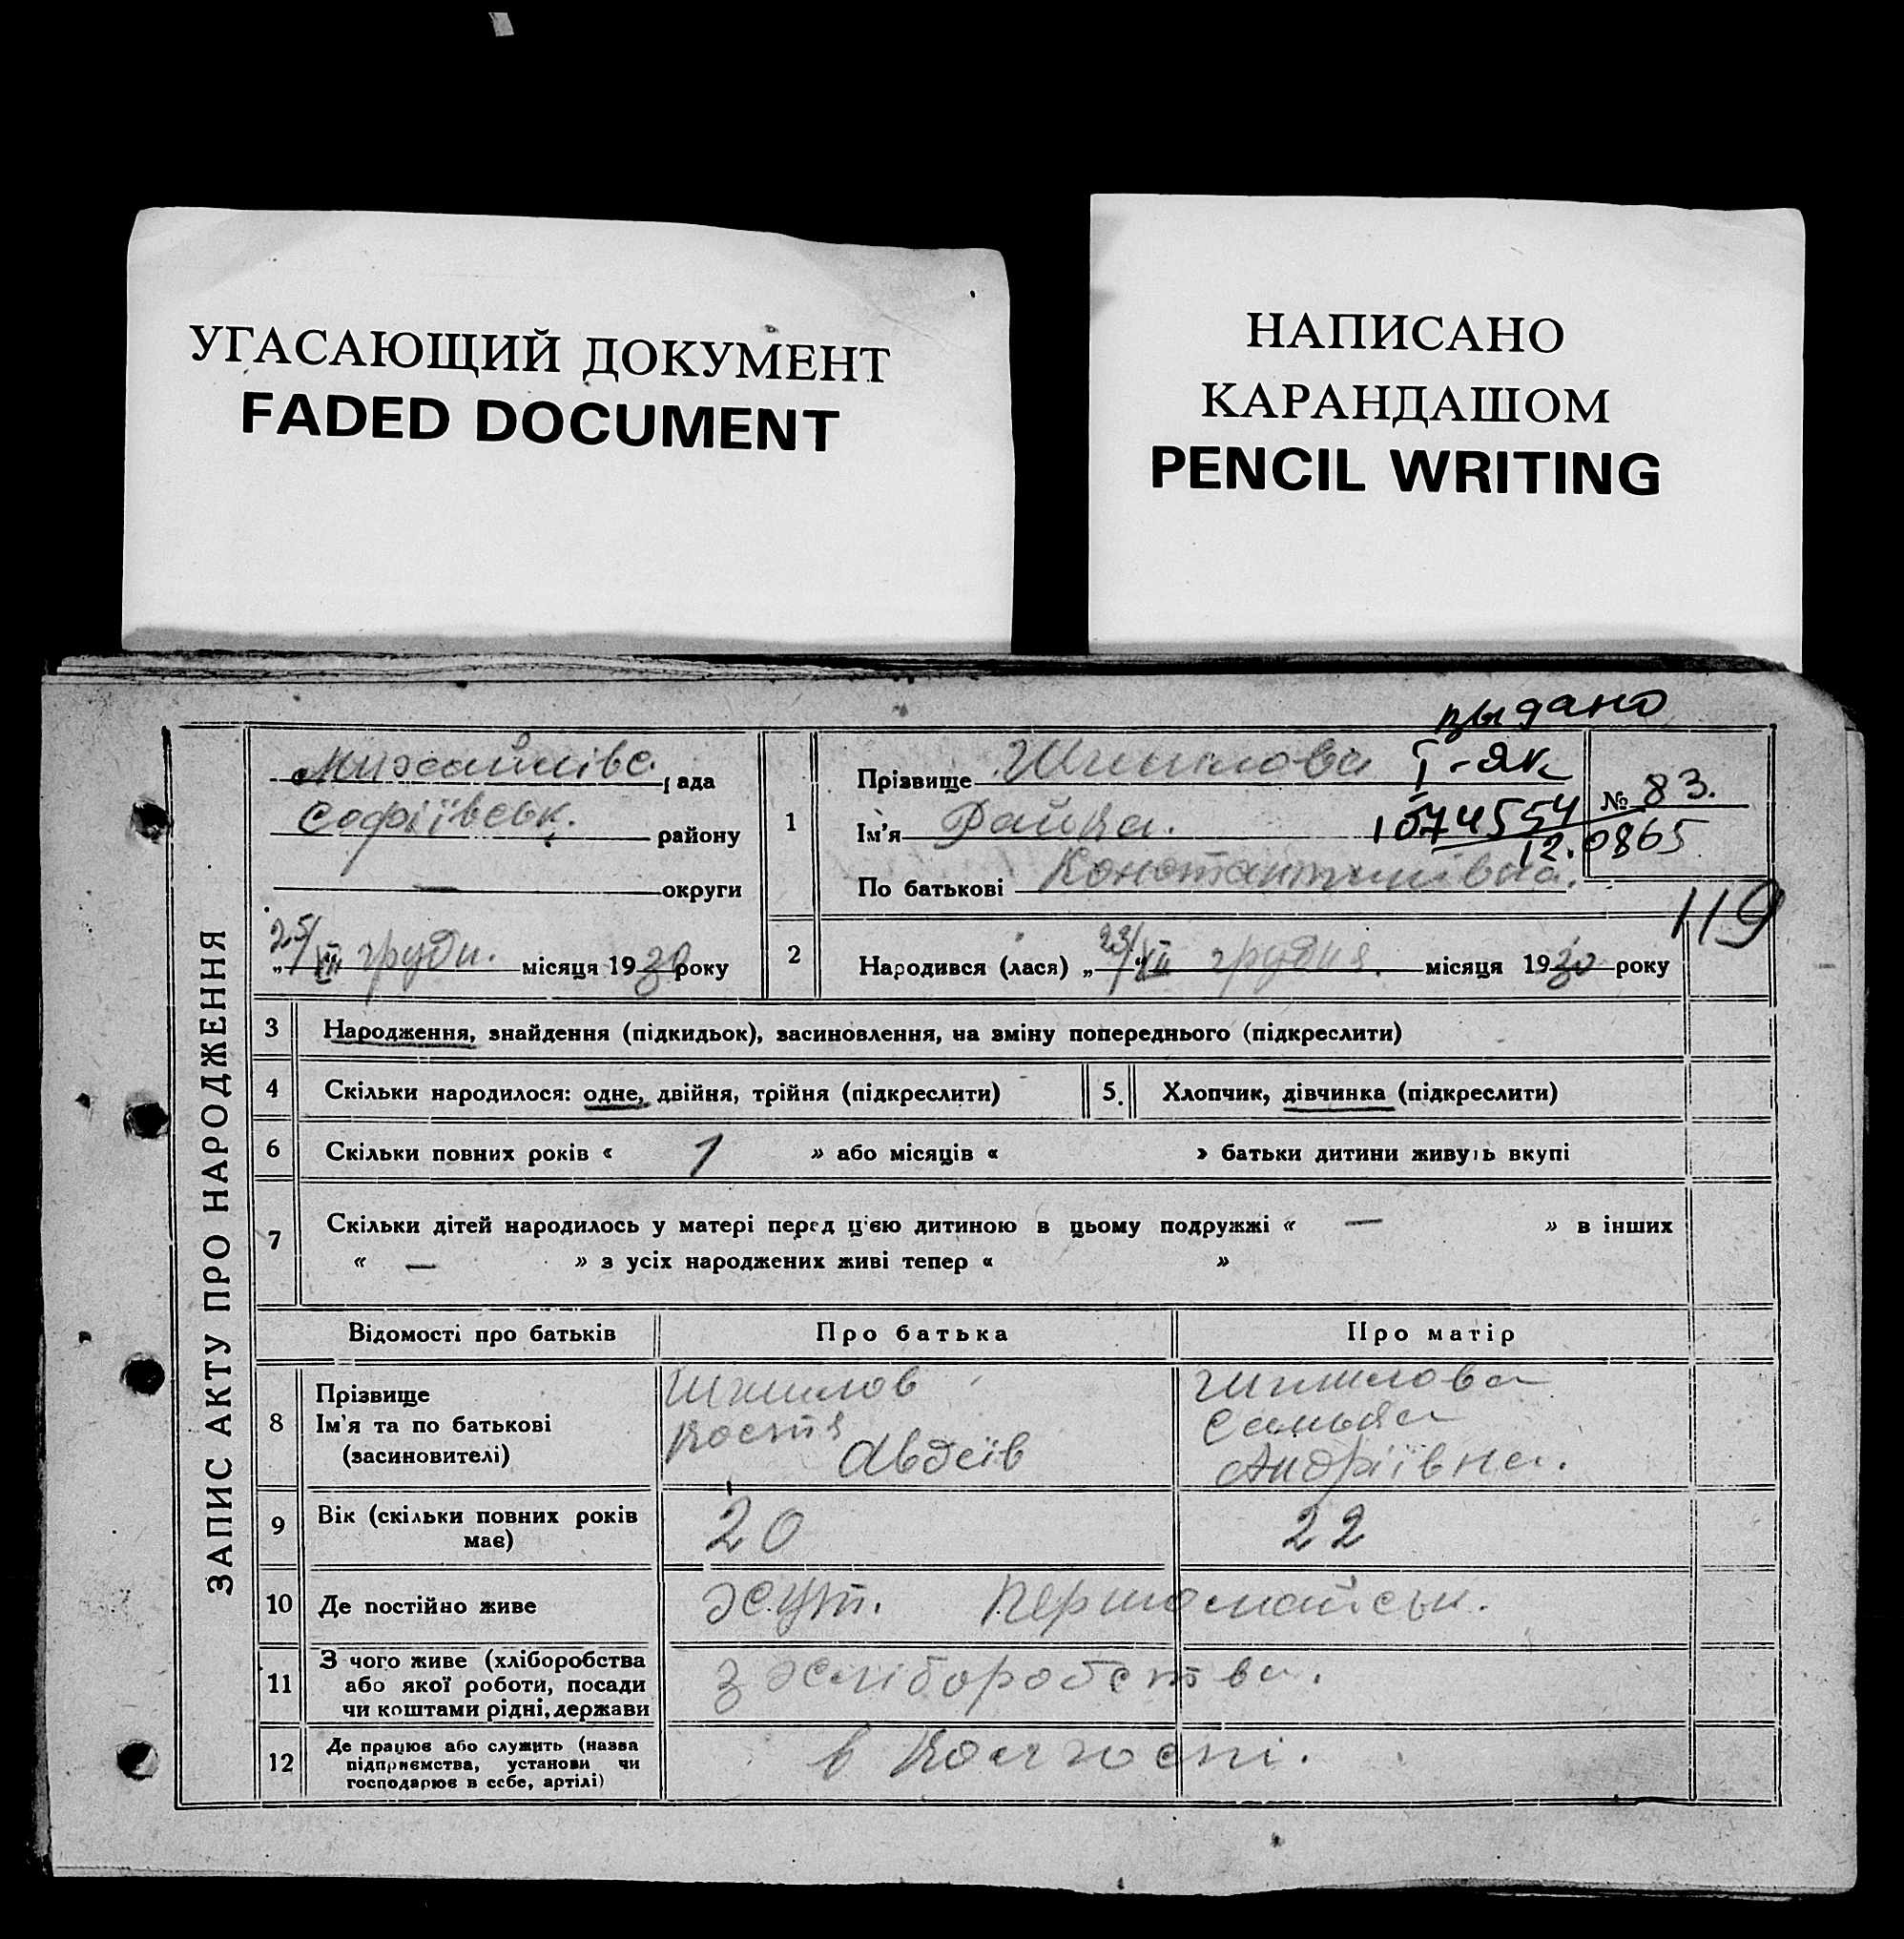 УГАСАЮЩИЙ ДОКУМЕНТ
FADED DOCUMENT
НАПИСАНО
КАРАНДАШОМ
PENCIL WRITING
ЗАПИС АКТУ ПРО НАРОДЖЕННЯ
Михайлівс. рада
Софіївськ. району
— округи
„25/XII груdн. місяця 1930 року
выдано
1 Прізвище Шишлова I-ЯК
№ 83.
Ім'я Райка. 574554
12.0865
По батькові Константинівна.
119
2 Народився (лася) „23/XII грудня. місяця 1930 року
3 Народження, знайдення (підкидьок), засиновлення, на зміну попереднього (підкреслити)
4 Скільки народилося: одне, двійня, трійня (підкреслити)
5. Хлопчик, дівчинка (підкреслити)
6 Скільки повних років « 1 » або місяців « » батьки дитини живуть вкупі
7 Скільки дітей народилось у матері перед цією дитиною в цьому подружжі « — » в інших
« — » з усіх народжених живі тепер « »
Відомості про батьків Про батька Про матір
8 Прізвище
Ім'я та по батькові
(засиновителі)
Шишлов
Костя
Авдеїв
Шишлова
Андріївна.
9 Вік (скільки повних років
має)
20 22
10 Де постійно живе хут. Першомайськ.
11 З чого живе (хліборобства
або якої роботи, посади
чи коштами рідні, держави
З хліборобства.
12 Де працює або служить (назва
підприємства, установи чи
господарює в себе, артілі)
в колгоспі.